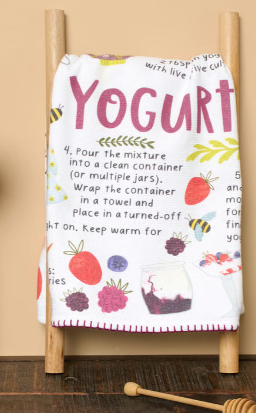 2 Tbsp. yog
with live
YOGURT
4. Pour the mixture
into a clean container
(or multiple jars).
Wrap the container
in a towel and
place in a turned-off
ght on. Keep warm for
5
an
mo
for
fin
yo
s:
ries